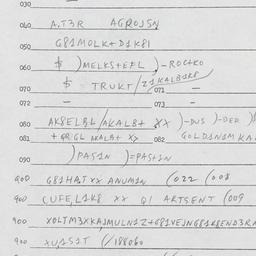 030
040 A.T3R AGROJSN
050 G81MOLK+D1K81
060 $ )MELKS+EFL )-ROC+KO
070 $ TRUKT/Z3KALB1R8 071 -
072 - 073 -
080 AK8ELBL/AKALB+ XX )-DUS )-DEP )8
081 +GRIGL AKALB+ X> 082 GOLDINIMKA
090 )PAS1N )=PASH1N
900 G81HAT XX ANUM1N (022 (008
900 CUFE,L1K8 XX Q1 ARTSENT (009
900 XOLTM3XKAJMULN1Z+G81VEJNG81K8END3RA
900 XU,1S1T (/188060